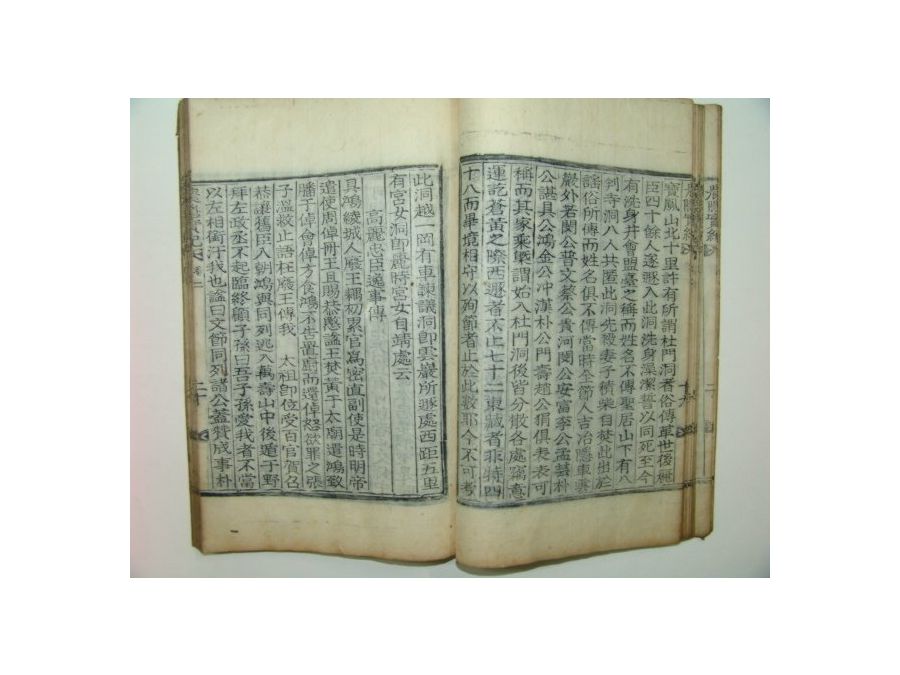 寶鳳山北十里許有所謂杜門洞者俗傳革世後麗
臣四十餘人遂遯入此洞洗身澡潔誓以同死至今
有洗身井會盟臺之稱而姓名不傳聖居山下有八
判寺洞八人共匿此洞先殺妻子積柴自焚此出於
謠俗所傳而姓名俱不傳當時全節人吉冶隱車雲
巖外若閔公普文蔡公貴河閔公安富李公孟芸朴
公諶具公鴻金公冲漢朴公門壽趙公狷俱表表可
稱而其家乘擧謂始入杜門洞後皆分散各處竊意
運訖蒼黃之際西遯者不止七十二東藏者非特四
十八而畢境相守以殉節者止於此數耶今不可考
此洞越一岡有車諫議洞卽雲巖所遯處西距五里
有宮女洞卽麗時宮女自靖處云
高麗忠臣逸事傳
具鴻綾城人廢王禑初累官爲密直副使是時明帝
遣使周倬冊王且賜恭愍謚王焚黃于太廟遣鴻致
膰于倬會倬方食鴻不告置廚而還倬怒欲罪之張
子溫救止語在廢王傳我 太祖卽位受百官賀召
恭讓舊臣入朝鴻與同列逃入萬壽山中後遁于野
拜左政丞不起臨終顧子孫曰吾子孫愛我者不當
以左相銜汙我也謚曰文節同列諸公蓋贊成事朴